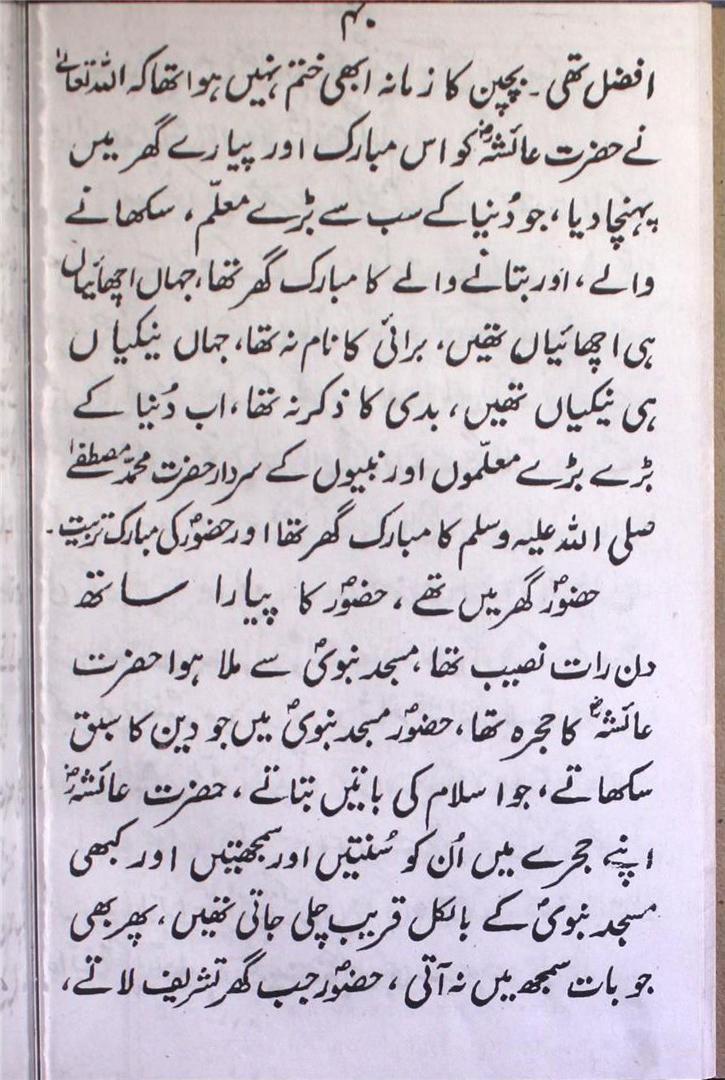 ۴۰
افضل تھی۔ بچپن کا زمانہ ابھی ختم نہیں ہوا تھا کہ اللہ تعالےٰ
نے حضرت عائشہؓ کو اس مبارک اور پیارے گھر میں
پہنچا دیا، جو دُنیا کے سب سے بڑے معلّم، سکھانے
والے، اور بتانے والے کا مبارک گھر تھا، جہاں اچھائیاں
ہی اچھائیاں تھیں، برائی کا نام نہ تھا، جہاں نیکیاں
ہی نیکیاں تھیں، بدی کا ذکر نہ تھا، اب دُنیا کے
بڑے بڑے معلّموں اور نبیوں کے سردار حضرت محمّد مصطفےٰ
صلی اللہ علیہ وسلم کا مبارک گھر تھا اور حضورؐ کی مبارک تربیت۔
حضورؐ گھر میں تھے، حضورؐ کا پیارا ساتھ
دن رات نصیب تھا، مسجد نبویؐ سے ملا ہوا حضرت
عائشہؓ کا حجرہ تھا، حضورؐ مسجد نبویؐ میں جو دین کا سبق
سکھاتے، جو اسلام کی باتیں بتاتے، حضرت عائشہؓ
اپنے حجرے میں اُن کو سُنتیں اور سمجھتیں اور کبھی
مسجد نبویؐ کے بالکل قریب چلی جاتی تھیں، پھر بھی
جو بات سمجھ میں نہ آتی، حضورؐ جب گھر تشریف لاتے،